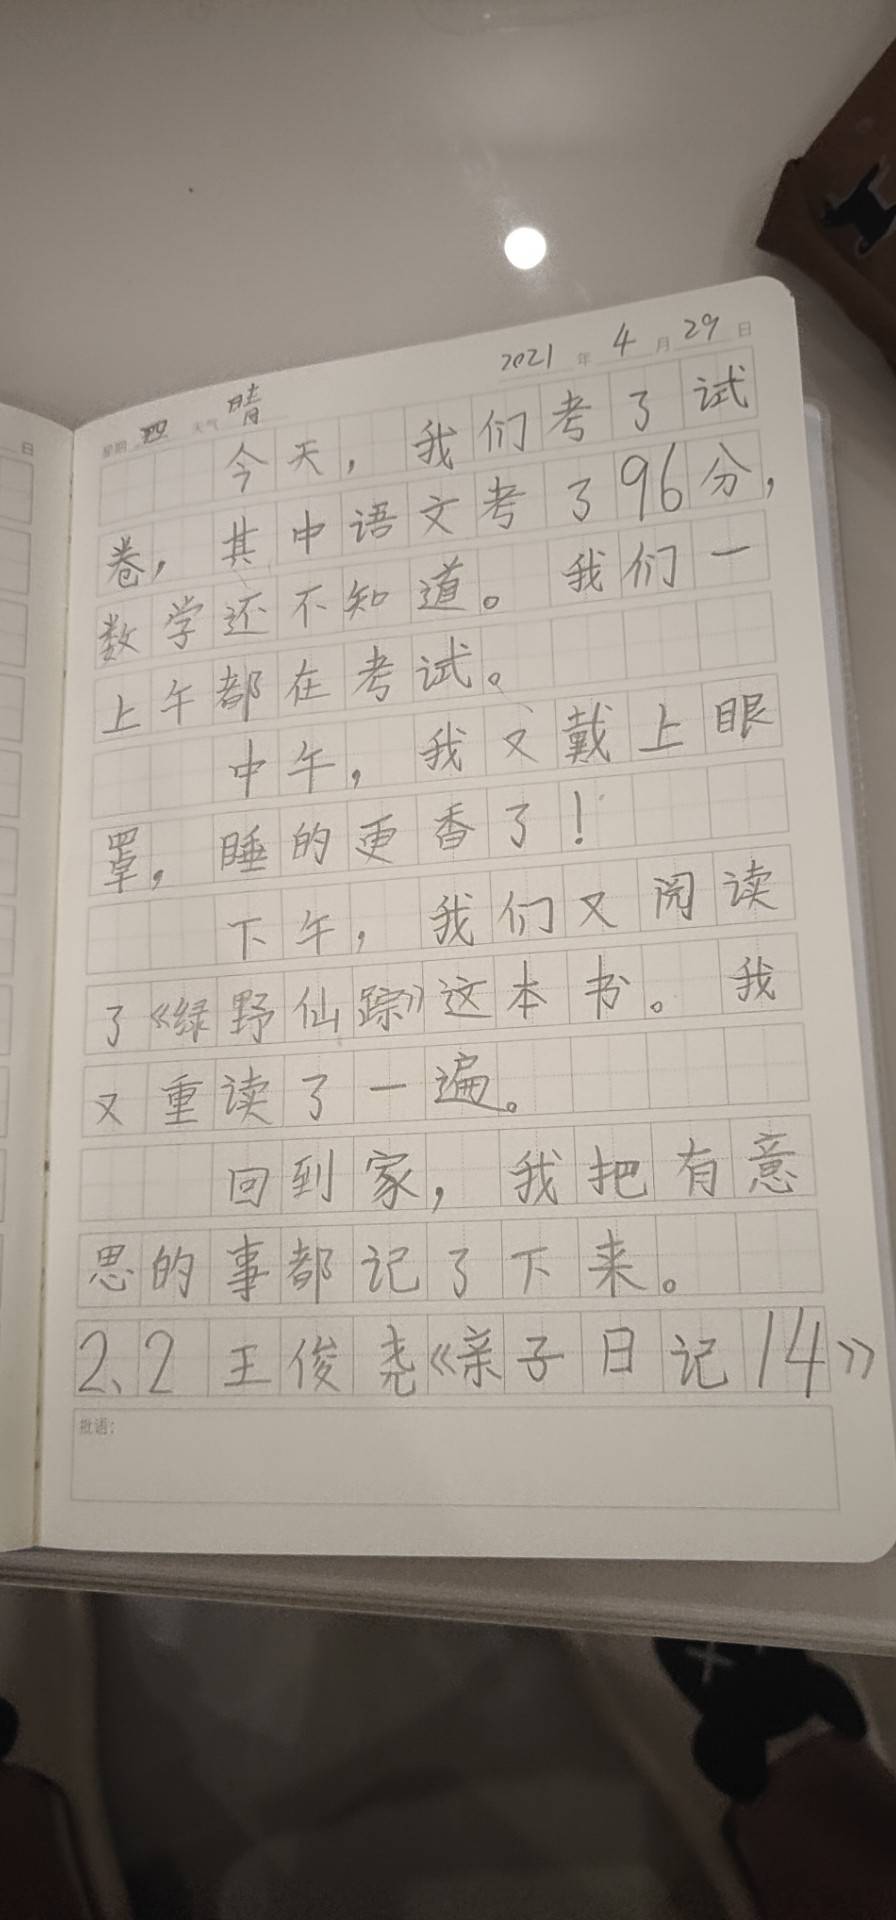 2021年4月29日
星期四 天气晴
今天，我们考了试
卷，其中语文考了96分，
数学还不知道。我们一
上午都在考试。
中午，我又戴上眼
罩，睡的更香了！
下午，我们又阅读
了《绿野仙踪》这本书。我
又重读了一遍。
回到家，我把有意
思的事都记了下来。
2、2王俊尧《亲子日记14》
批语：
日